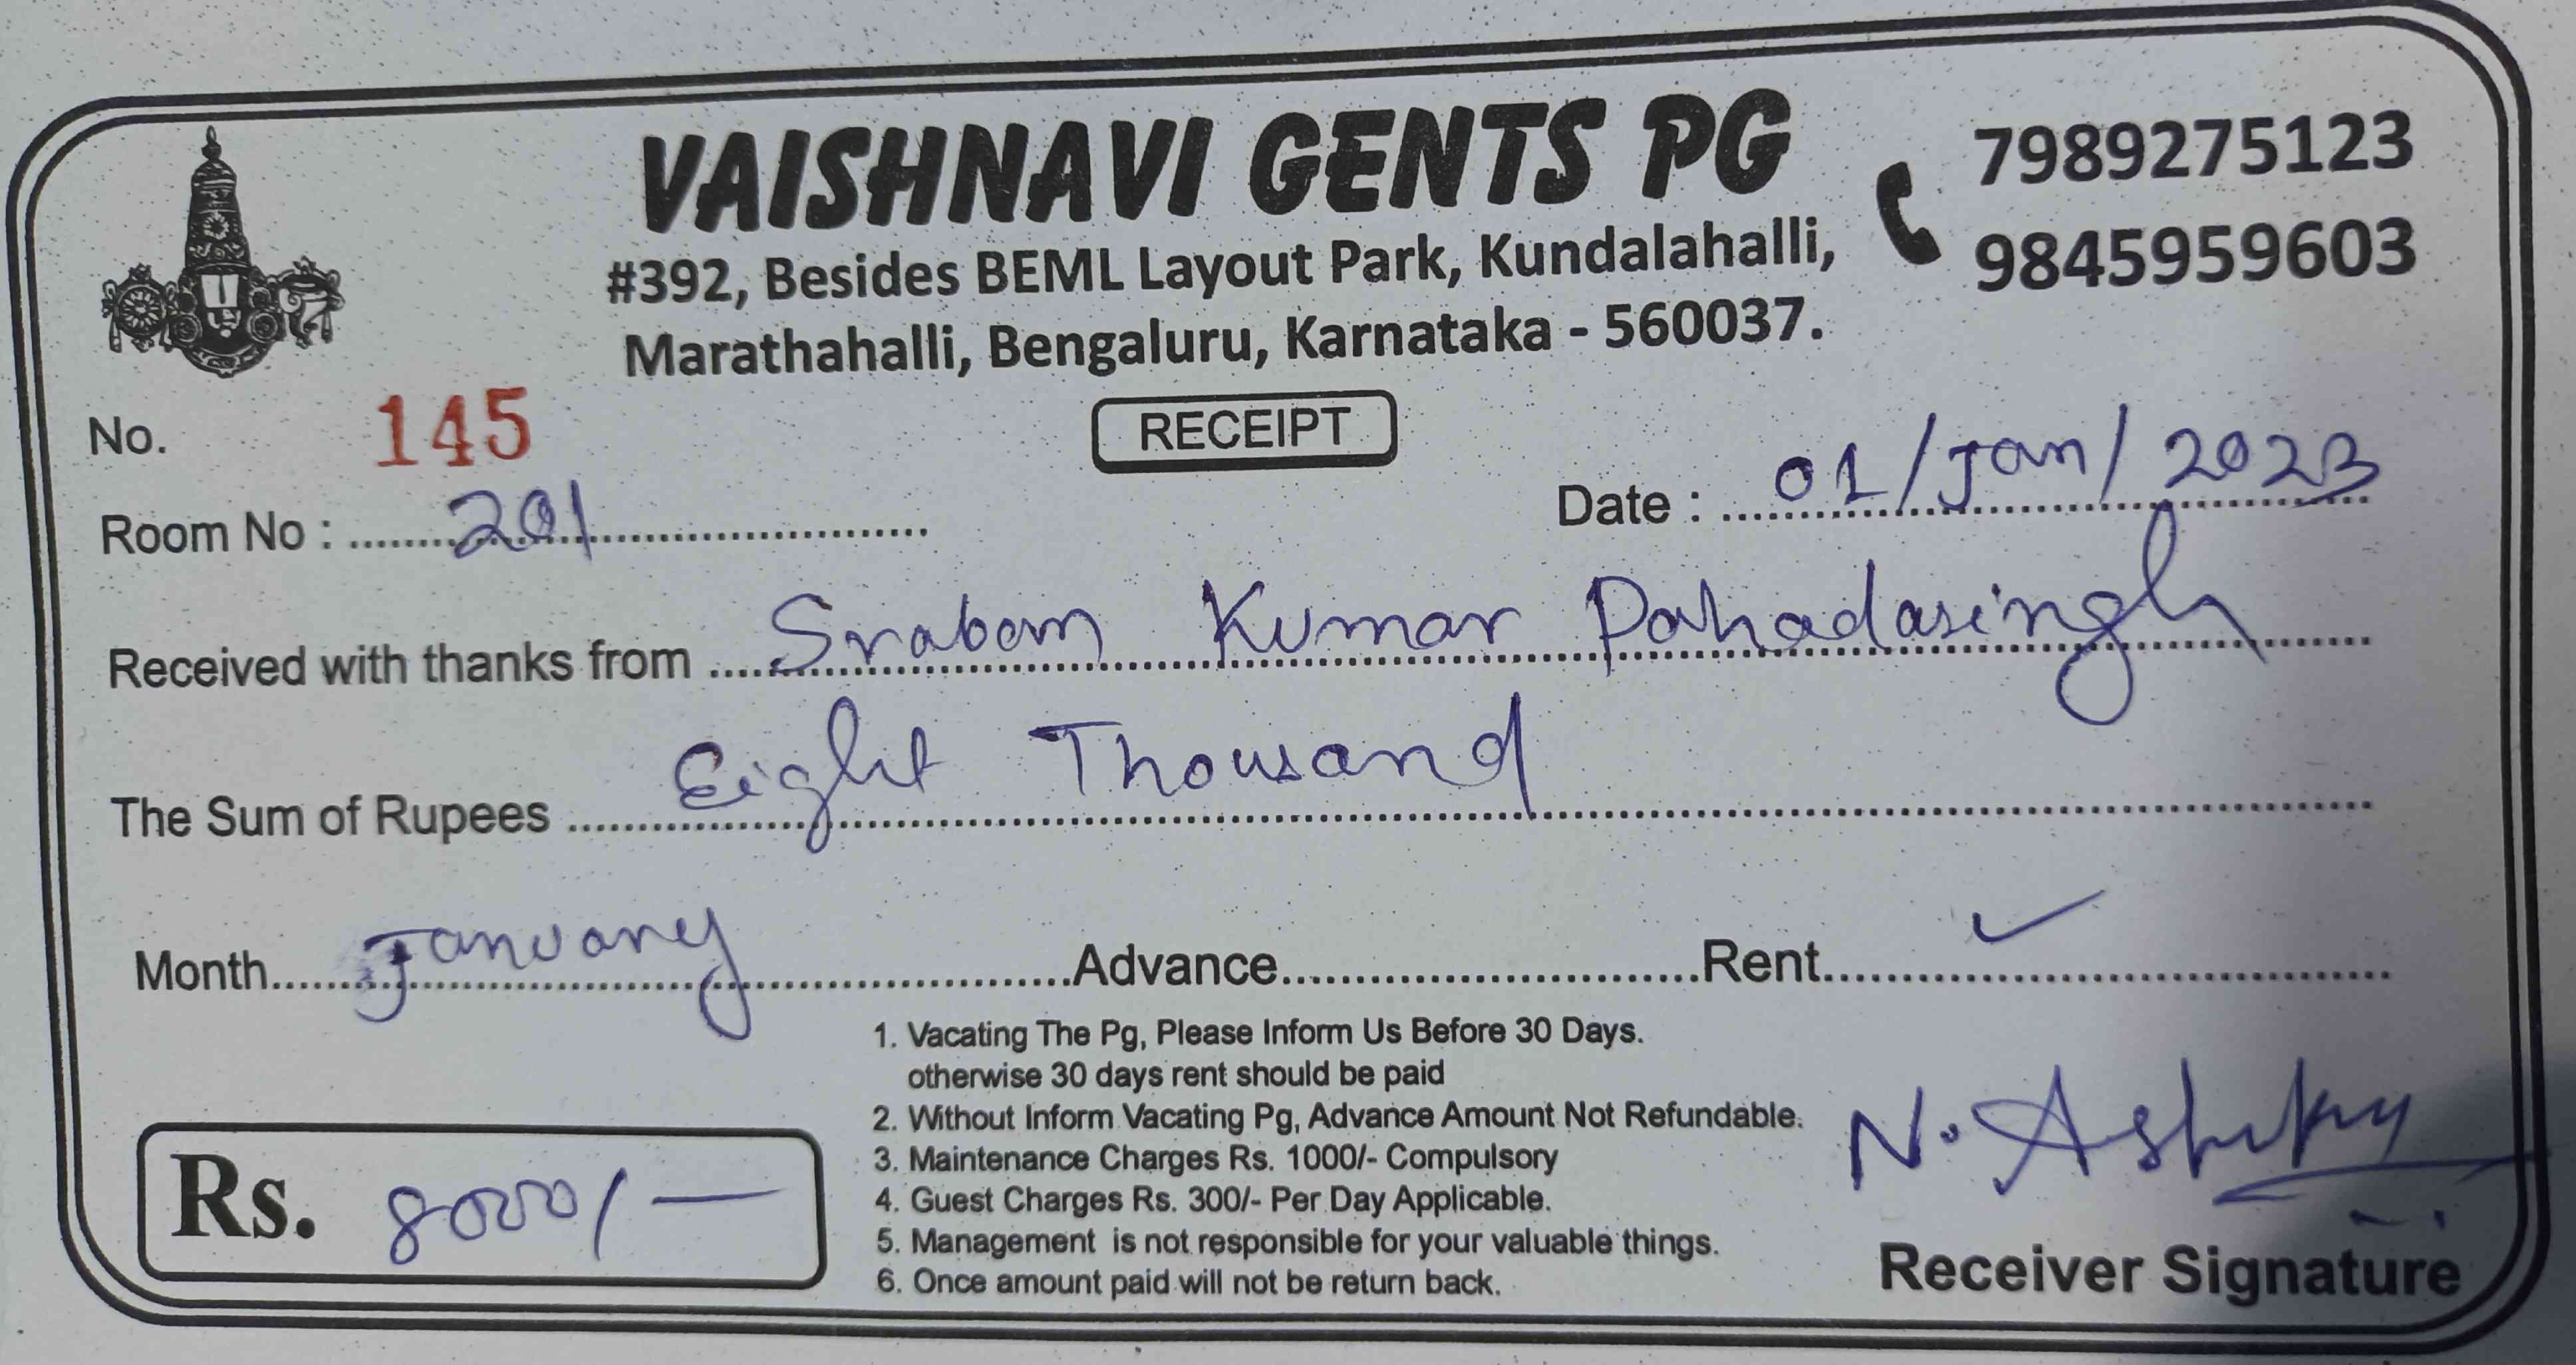 VAISHNAVI GENTS PG
7989275123
9845959603
#392, Besides BEML Layout Park, Kundalahalli,
Marathahalli, Bengaluru, Karnataka - 560037.
No. 145
RECEIPT
Room No : 201
Date : 01/Jan/2023
Received with thanks from Sraban Kumar Pahadasingh
The Sum of Rupees Eight Thousand
Month January Advance Rent ✓
1. Vacating The Pg, Please Inform Us Before 30 Days.
otherwise 30 days rent should be paid
2. Without Inform Vacating Pg, Advance Amount Not Refundable.
3. Maintenance Charges Rs. 1000/- Compulsory
4. Guest Charges Rs. 300/- Per Day Applicable.
5. Management is not responsible for your valuable things.
6. Once amount paid will not be return back.
Rs. 8000/-
N.
Receiver Signature